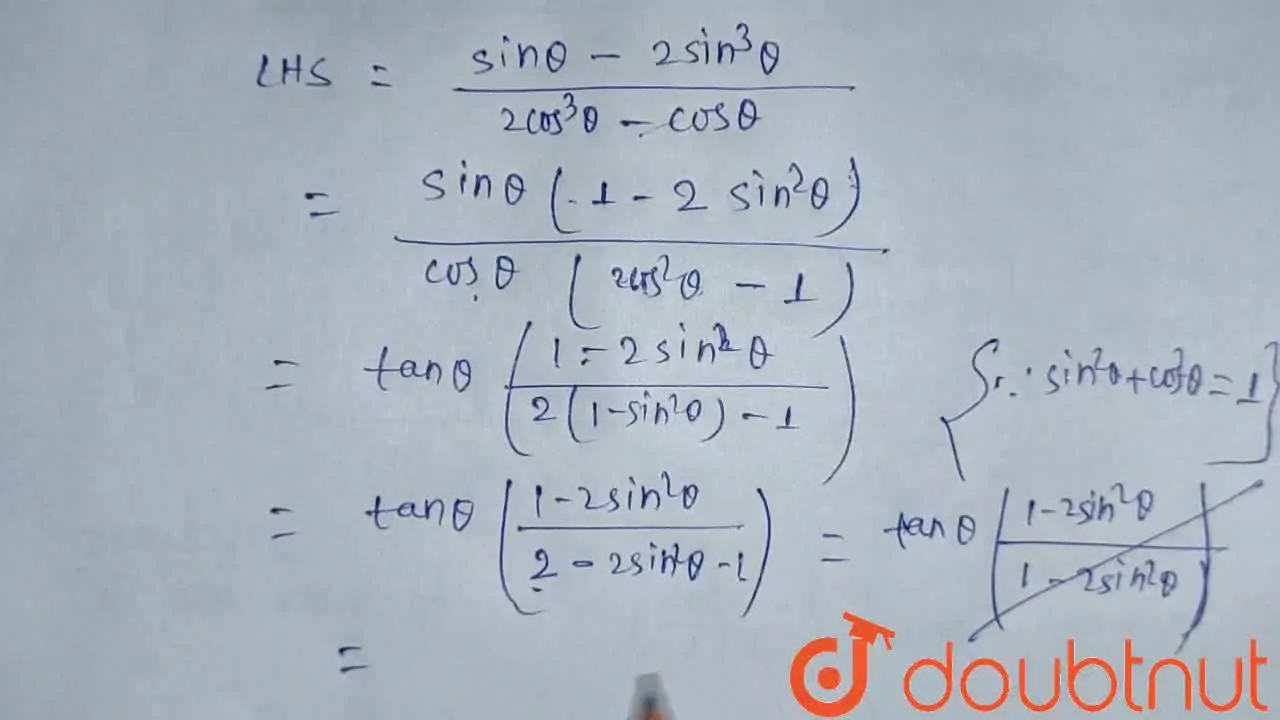 LHS = (sinθ - 2sin³θ) / (2cos³θ - cosθ)
= sinθ (1 - 2 sin²θ) / cosθ (2cos²θ - 1)
= tanθ ((1 - 2sin²θ) / (2(1-sin²θ) - 1)) {∵ sin²θ+cos²θ=1}
= tanθ ((1-2sin²θ) / (2 - 2sin²θ - 1)) = tanθ ((1-2sin²θ) / (1-2sin²θ))
=
doubtnut